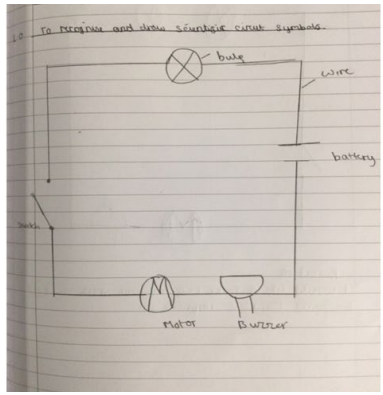 L.O. To recognise and draw scientific circuit symbols.
bulb
wire
battery
switch
M
Motor
Buzzer